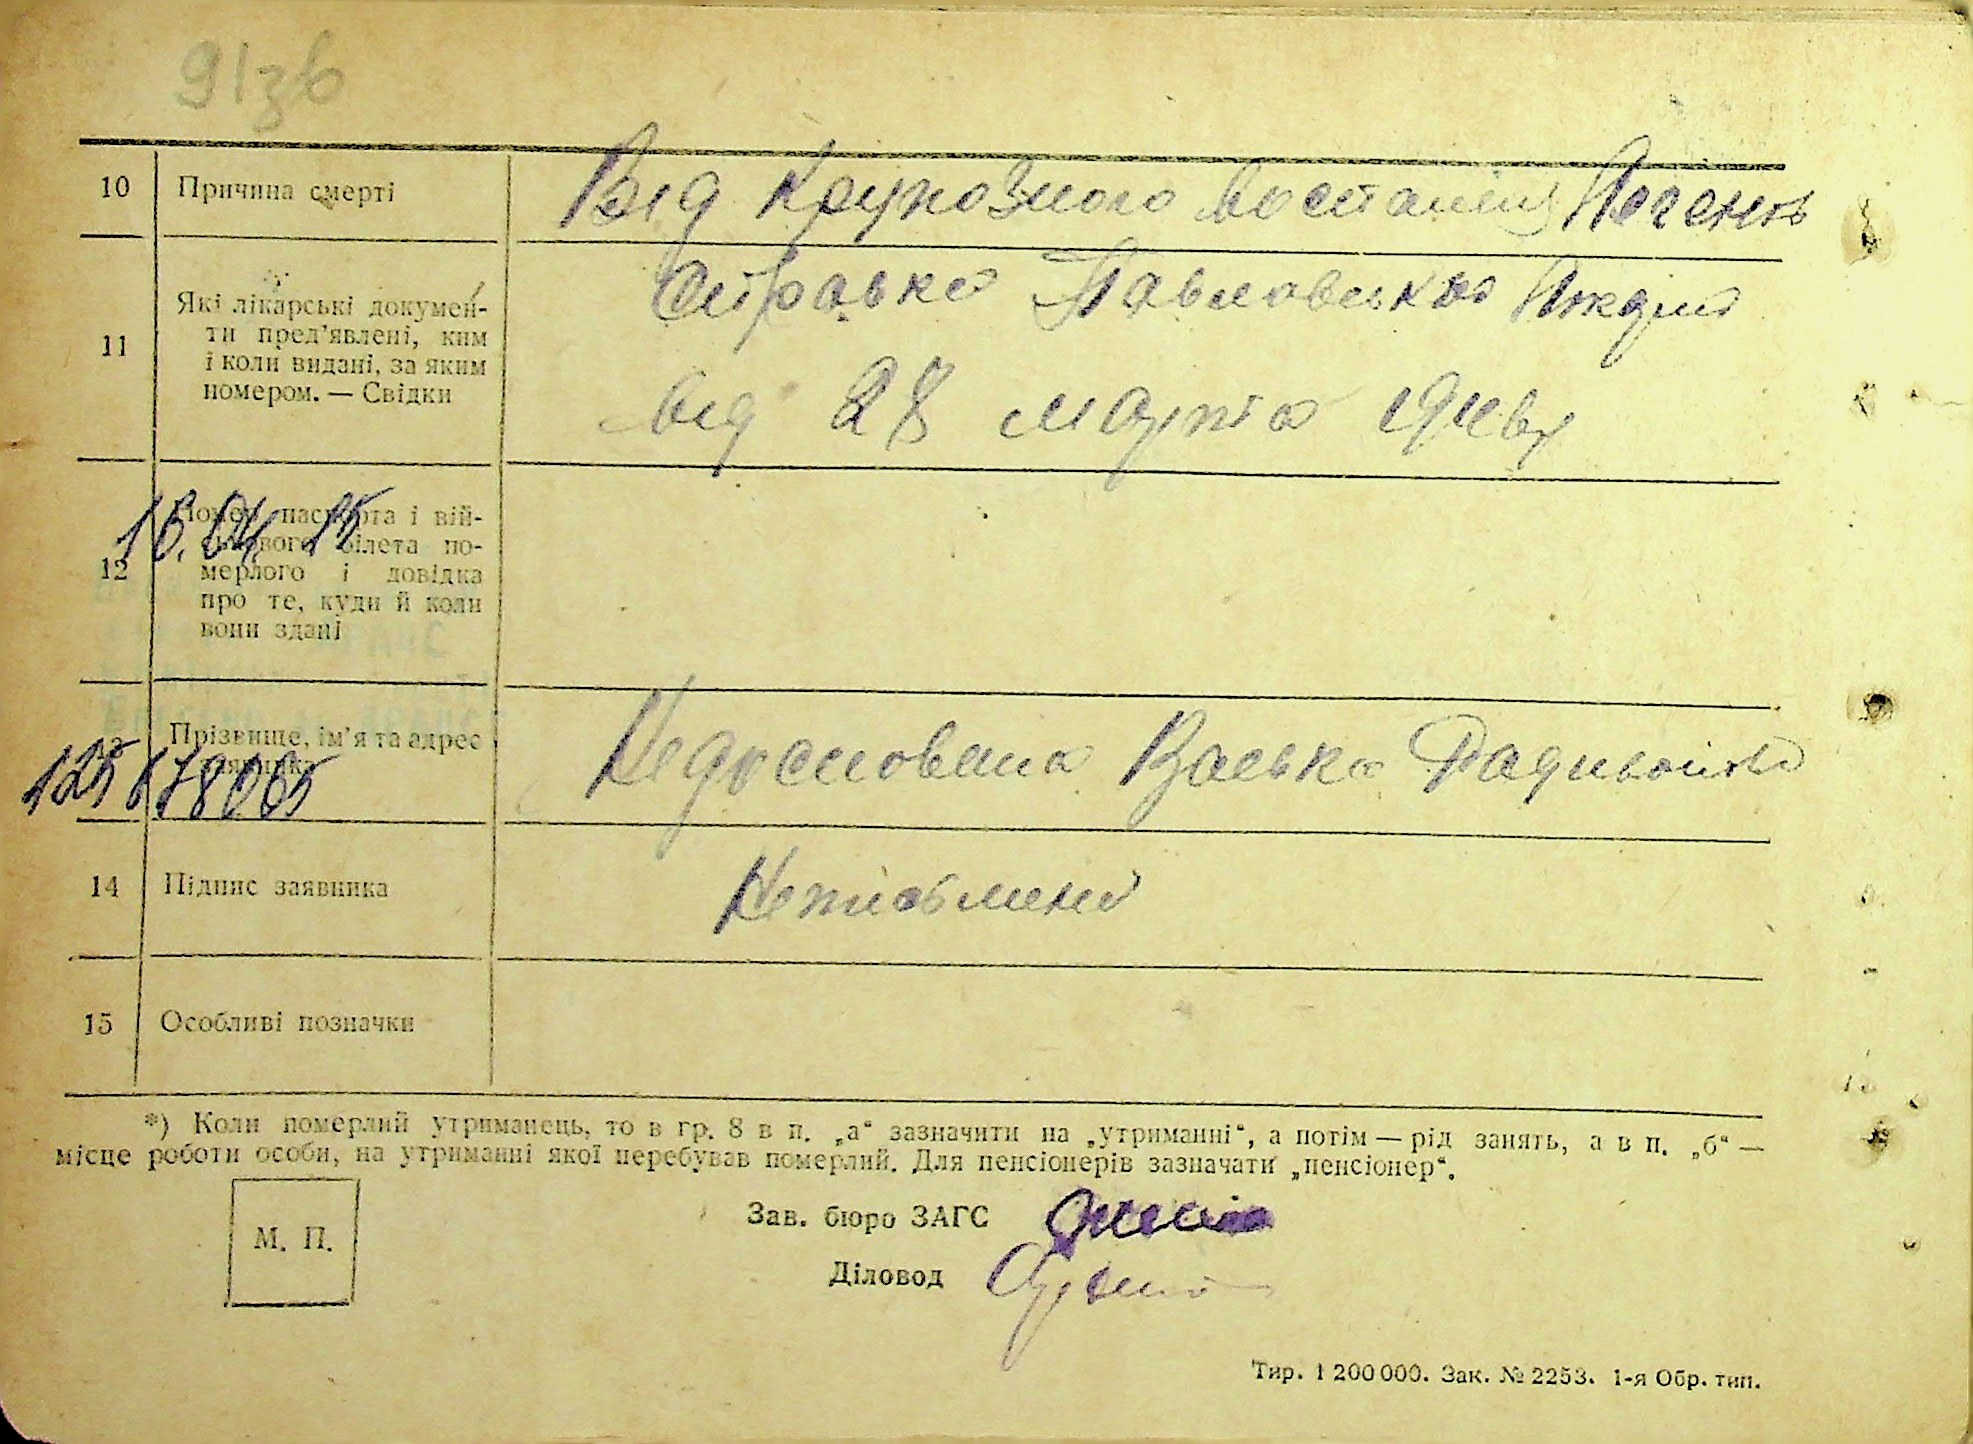 91зв
10 Причина смерті
Від Крупозного воспаления Печень
11 Які лікарські докумен-
ти пред’явлені, ким
і коли видані, за яким
номером. — Свідки
Справка Павловської
від 28 марта
12 Номер паспорта і вій-
ськового білета по-
мерлого і довідка
про те, куди й коли
вони здані
16.04 15
13 Прізвище, ім’я та адрес
заявника
Васька
125 678065
14 Підпис заявника
Неписьмений
15 Особливі позначки
*) Коли померлий утриманець, то в гр. 8 в п. „а“ зазначити на „утриманні“, а потім — рід занять, а в п. „б“ —
місце роботи особи, на утриманні якої перебував померлий. Для пенсіонерів зазначати „пенсіонер“.
М. П.
Зав. бюро ЗАГС
Діловод
Тир. 1 200 000. Зак. № 2253. 1-я Обр. тип.